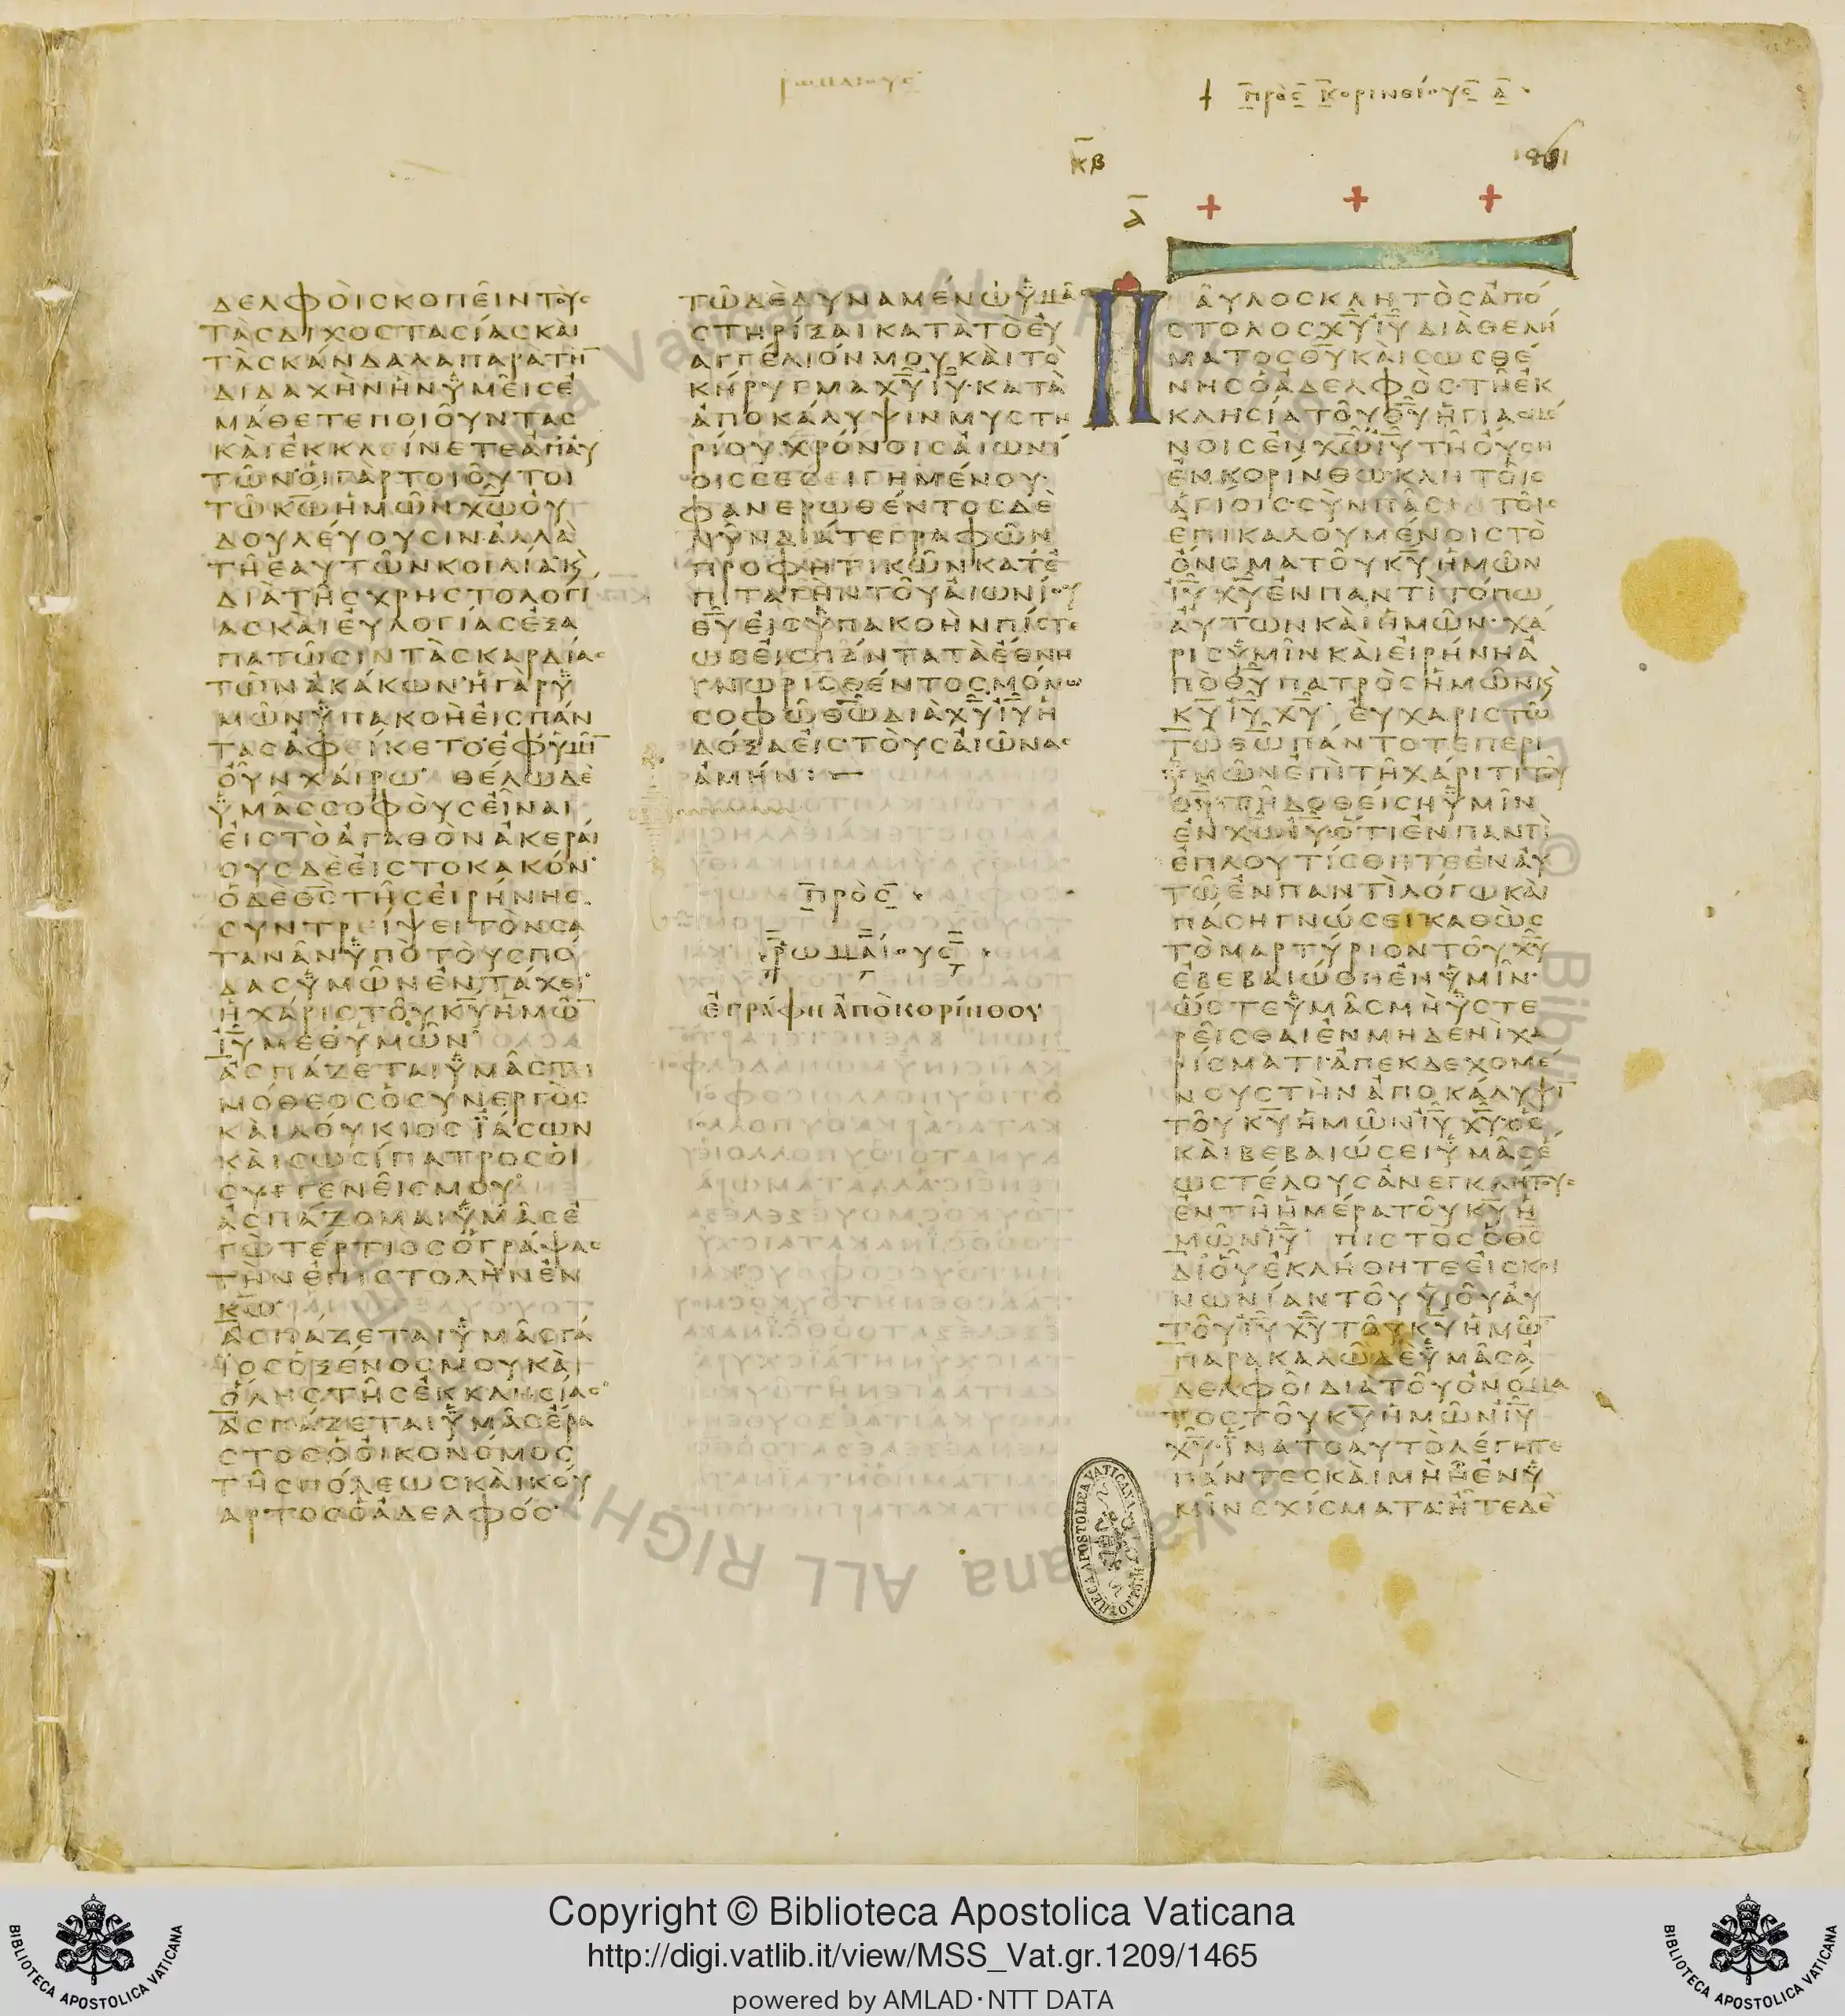 ρωμαιους
† πρὸς κορινθίους α
κβ
1461
α
ΔΕΛΦΟῚ ΣΚΟΠΕῖΝ ΤΟῪϹ
ΤᾺϹ ΔΙΧΟϹΤΑϹΊΑϹ ΚΑῚ
ΤᾺ ϹΚΆΝΔΑΛΑ ΠΑΡΑ ΤΗ̅
ΔΙΔΑΧῊΝ ἫΝ ὙΜΕῖϹ Ἐ
ΜΆΘΕΤΕ ΠΟΙΟῦΝΤΑϹ
ΚΑῚ ἘΚΚΛΕΊΝΕΤΕ ἈΠ ΑΥ
ΤῶΝ· ΟἹ ΓᾺΡ ΤΟΙΟῦΤΟΙ
Τῶ Κ̅Ω̅ ἩΜῶΝ Χ̅Ω̅ ΟΥ
ΔΟΥΛΕΎΟΥϹΙΝ ἈΛΛᾺ
Τῆ ΕΑΥΤῶΝ ΚΟΙΛΊΑ· Κ̀
ΔΙᾺ ΤῆϹ ΧΡΗϹΤΟΛΟΓΙ
ΑϹ ΚΑῚ ΕΥΛΟΓΊΑϹ ἘΞΑ
ΠΑΤῶϹΙΝ ΤᾺϹ ΚΑΡΔΊΑϹ
ΤῶΝ ἈΚΆΚΩΝ· Ἡ ΓΑΡ Ὑ
ΜῶΝ ὙΠΑΚΟῊ ΕΙϹ ΠΆΝ
ΤΑϹ ἈΦΕΊΚΕΤΟ· ἘΦ ὙΜῖ̅
ΟΥΝ ΧΑΊΡΩ· ΘΈΛΩ ΔῈ
ὙΜᾶϹ ϹΟΦΟῪϹ ΕἶΝΑΙ
ΕΙϹ ΤῸ ἈΓΑΘῸΝ ἈΚΕΡΑΊ
ΟΥϹ ΔΕ ΕΙϹ ΤΟ ΚΑΚΌΝ·
Ὁ ΔῈ Θ̅Ϲ̅ ΤῆϹ ΕΙΡΉΝΗϹ
ϹΥΝΤΡΕΊΨΕΙ ΤῸΝ ϹΑ
ΤΑΝᾶΝ ὙΠῸ ΤΟῪϹ ΠΌ
ΔΑϹ ὙΜῶΝ ἘΝ ΤΆΧΕΙ·
Ἡ ΧΆΡΙϹ ΤΟῦ Κ̅Υ̅ ἩΜῶ̅
Ι̅Υ̅ ΜΕΘ ὙΜῶΝ·
ἈϹΠΆΖΕΤΑΙ ὙΜᾶϹ ΤΙ
ΜΌΘΕΟϹ Ὁ ϹΥΝΕΡΓῸϹ
ΚΑῚ ΛΟΎΚΙΟϹ ἸΆϹΩΝ
ΚΑῚ ϹΩϹΊΠΑΤΡΟϹ ΟΙ
ϹΥΓΓΕΝΕῖϹ ΜΟΥ·
ἈϹΠΆΖΟΜΑΙ ὙΜᾶϹ Ἐ
ΓῺ ΤΈΡΤΙΟϹ Ὁ ΓΡΆΨΑϹ
ΤῊΝ ἘΠΙϹΤΟΛῊΝ ἘΝ
Κ̅Ω̅·
ἈϹΠΆΖΕΤΑΙ ὙΜᾶϹ ΓΆ
ΪΟϹ Ὁ ΞΈΝΟϹ ΜΟΥ ΚΑῚ
ὍΛΗϹ ΤῆϹ ἘΚΚΛΗϹΊΑϹ·
ἈϹΠΆΖΕΤΑΙ ὙΜᾶϹ ἜΡΑ
ϹΤΟϹ Ὁ ΟΙΚΟΝΌΜΟϹ
ΤῆϹ ΠΌΛΕΩϹ ΚΑῚ ΚΟΎ
ΑΡΤΟϹ Ὁ ἈΔΕΛΦΌϹ·
Τῶ ΔῈ ΔΥΝΑΜΈΝΩ ὙΜᾶϹ
ϹΤΗΡΊΞΑΙ ΚΑΤᾺ ΤῸ ΕΥ
ΑΓΓΈΛΙΟΝ ΜΟΥ ΚΑῚ ΤῸ
ΚΉΡΥΓΜΑ Χ̅Υ̅ Ι̅Υ̅· ΚΑΤᾺ
ἈΠΟΚΆΛΥΨΙΝ ΜΥϹΤΗ
ΡΊΟΥ ΧΡΌΝΟΙϹ ΑΙΩΝΊ
ΟΙϹ ϹΕϹΕΙΓΗΜΈΝΟΥ·
ΦΑΝΕΡΩΘΈΝΤΟϹ ΔῈ
ΝῦΝ ΔΙΆ ΤΕ ΓΡΑΦῶΝ
ΠΡΟΦΗΤΙΚῶΝ ΚΑΤ Ἐ
ΠΙΤΑΓῊΝ ΤΟῦ ΑΙΩΝΊΟΥ
Θ̅Υ̅ ΕΙϹ ὙΠΑΚΟῊΝ ΠΊϹΤΕ
ΩϹ ΕΙϹ ΠΆΝΤΑ ΤᾺ ἜΘΝΗ
ΓΝΩΡΙϹΘΈΝΤΟϹ ΜΌΝΩ
ϹΟΦῶ Θ̅Ω̅ ΔΙᾺ Χ̅Υ̅ Ι̅Υ̅ Ἡ
ΔΌΞΑ ΕΙϹ ΤΟῪϹ ΑΙῶΝΑϹ
ἈΜΉΝ : —
πρὸς
ῥωμαίους
ἐγράφη ἀπὸ κορίνθου
Π ΑῦΛΟϹ ΚΛΗΤῸϹ ἈΠΌ
ϹΤΟΛΟϹ Χ̅Υ̅ Ι̅Υ̅ ΔΙᾺ ΘΕΛΉ
ΜΑΤΟϹ Θ̅Υ̅ ΚΑῚ ϹΩϹΘΈ
ΝΗϹ Ὁ ἈΔΕΛΦῸϹ· Τῆ ἘΚ
ΚΛΗϹΊΑ ΤΟῦ Θ̅Υ̅ ἩΓΙΑϹΜΈ
ΝΟΙϹ ἘΝ Χ̅Ω̅ Ι̅Υ̅ Τῆ ΟΎϹΗ
ἘΝ ΚΟΡΊΝΘΩ· ΚΛΗΤΟῖϹ
ἉΓΊΟΙϹ· ϹῪΝ ΠᾶϹΙ ΤΟῖϹ
ἘΠΙΚΑΛΟΥΜΈΝΟΙϹ ΤῸ
ὌΝΟΜΑ ΤΟῦ Κ̅Υ̅ ἩΜῶΝ
Ι̅Υ̅ Χ̅Υ̅ ἘΝ ΠΑΝΤῚ ΤΌΠΩ
ΑΥΤῶΝ ΚΑῚ ἩΜῶΝ· ΧΆ
ΡΙϹ ὙΜῖΝ ΚΑῚ ΕΙΡΉΝΗ Ἀ
ΠῸ Θ̅Υ̅ ΠΑΤΡῸϹ ἩΜῶΝ Κ̀
Κ̅Υ̅ Ι̅Υ̅ Χ̅Υ̅· ΕΥΧΑΡΙϹΤῶ
Τῶ Θ̅Ω̅ ΠΆΝΤΟΤΕ ΠΕΡΙ
ὙΜῶΝ ἘΠῚ Τῆ ΧΆΡΙΤΙ ΤΟῦ
Θ̅Υ̅ Τῆ ΔΟΘΕΊϹΗ ὙΜῖΝ
ἘΝ Χ̅Ω̅ Ι̅Υ̅· ὍΤΙ ἘΝ ΠΑΝΤῚ
ἘΠΛΟΥΤΊϹΘΗΤΕ ἘΝ ΑΥ
Τῶ ἘΝ ΠΑΝΤῚ ΛΌΓΩ ΚΑῚ
ΠΆϹΗ ΓΝΏϹΕΙ ΚΑΘῺϹ
ΤῸ ΜΑΡΤΎΡΙΟΝ ΤΟῦ Χ̅Υ̅
ἘΒΕΒΑΙΏΘΗ ἘΝ ὙΜῖΝ·
ὭϹΤΕ ὙΜᾶϹ ΜῊ ὙϹΤΕ
ΡΕῖϹΘΑΙ ἘΝ ΜΗΔΕΝῚ ΧΑ
ΡΊϹΜΑΤΙ· ἈΠΕΚΔΕΧΟΜΈ
ΝΟΥϹ ΤῊΝ ἈΠΟΚΆΛΥΨΙ̅
ΤΟῦ Κ̅Υ̅ ἩΜῶΝ Ι̅Υ̅ Χ̅Υ̅· ὋϹ
ΚΑῚ ΒΕΒΑΙΏϹΕΙ ὙΜᾶϹ Ἕ
ΩϹ ΤΈΛΟΥϹ ἈΝΕΓΚΛΉΤΟΥϹ
ἘΝ Τῆ ἩΜΈΡΑ ΤΟῦ Κ̅Υ̅ Ἡ
ΜῶΝ Ι̅Υ̅ ΠΙϹΤῸϹ Ὁ Θ̅Ϲ̅
ΔΙ ΟΥ ἘΚΛΉΘΗΤΕ ΕΙϹ ΚΟΙ
ΝΩΝΊΑΝ ΤΟῦ ΥἹΟῦ ΑΥ
ΤΟῦ Ι̅Υ̅ Χ̅Υ̅ ΤΟῦ Κ̅Υ̅ ἩΜῶ̅
ΠΑΡΑΚΑΛῶ ΔῈ ὙΜᾶϹ Ἀ
ΔΕΛΦΟΙ ΔΙᾺ ΤΟῦ ΟΝΌΜΑ
ΤΟϹ ΤΟῦ Κ̅Υ̅ ἩΜῶΝ Ι̅Υ̅
Χ̅Υ̅· ἽΝΑ ΤΟ ΑΥΤῸ ΛΈΓΗΤΕ
ΠΆΝΤΕϹ ΚΑῚ ΜῊ ἮΙ ἘΝ Ὑ
ΜῖΝ ϹΧΊϹΜΑΤΑ· ἮΤΕ ΔῈ
BIBLIOTECA APOSTOLICA VATICANA
Copyright © Biblioteca Apostolica Vaticana
http://digi.vatlib.it/view/MSS_Vat.gr.1209/1465
powered by AMLAD·NTT DATA
BIBLIOTECA APOSTOLICA VATICANA
BIBLIOTECA APOSTOLICA VATICANA